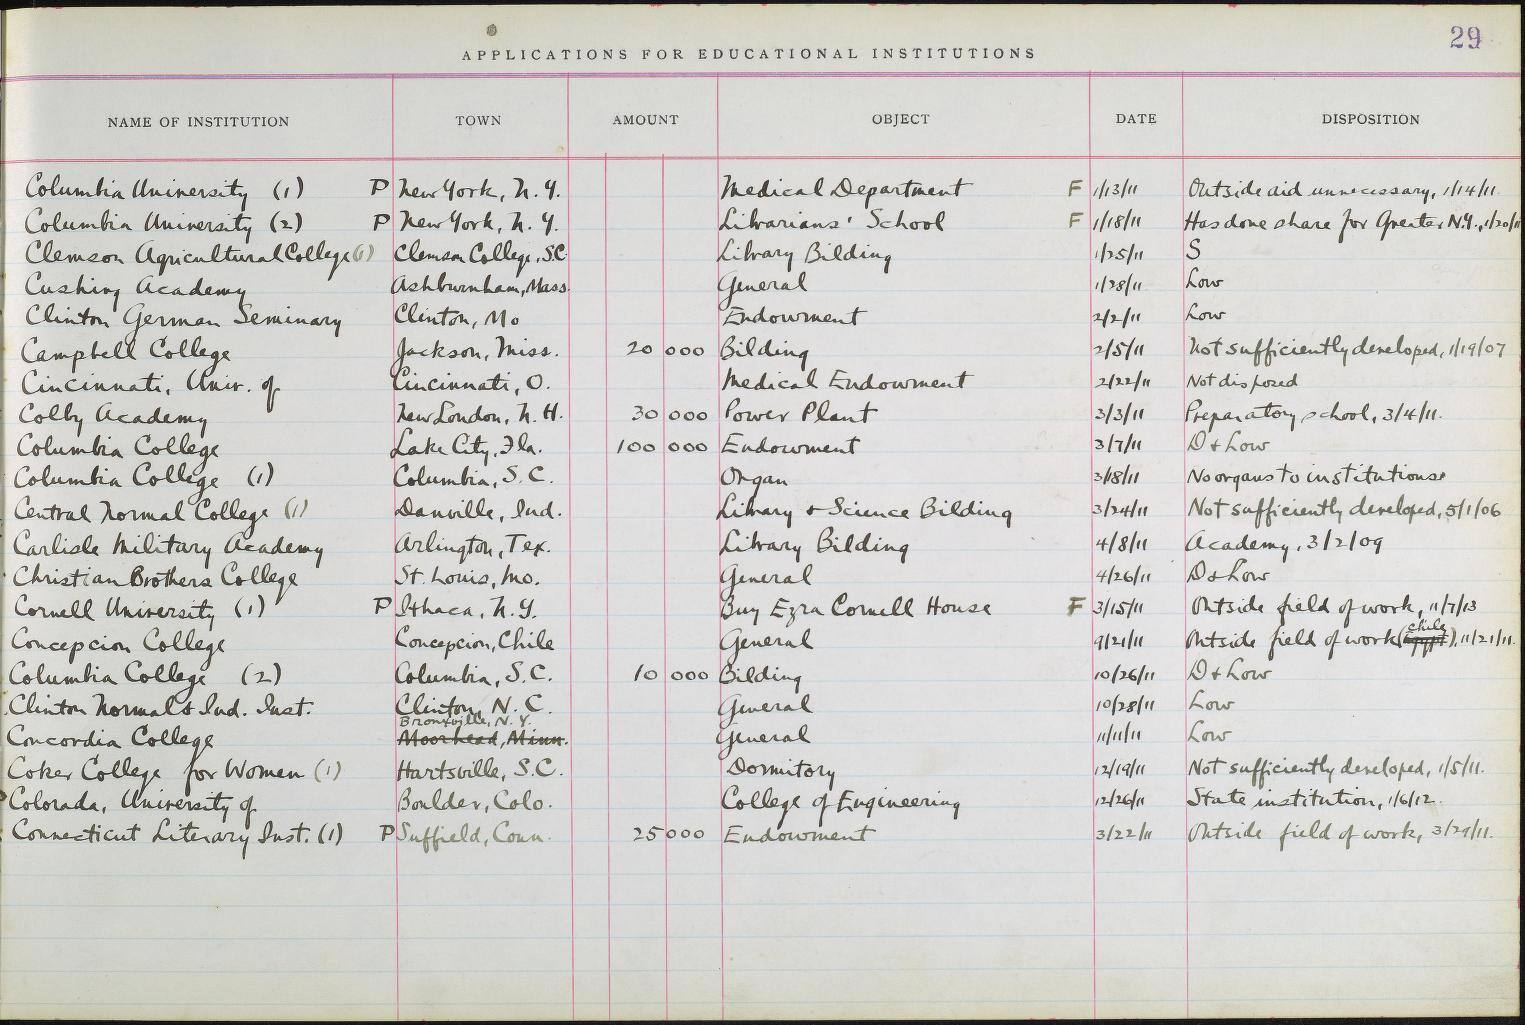 29
APPLICATIONS FOR EDUCATIONAL INSTITUTIONS
NAME OF INSTITUTION TOWN AMOUNT OBJECT DATE DISPOSITION
Columbia University (1) P New York, N.Y. Medical Department F 1/13/11 Outside aid unnecessary, 1/14/11.
Columbia University (2) P New York, N.Y. Librarians' School F 1/18/11 Has done share for Greater N.Y., 1/20/11
Clemson Agricultural College (1) Clemson College, S.C. Library Bilding 1/25/11 S
Cushing Academy Ashburnham, Mass. General 1/28/11 Low
Clinton German Seminary Clinton, Mo Endowment 2/2/11 Low
Campbell College Jackson, Miss. 20 000 Bilding 2/5/11 Not sufficiently developed, 1/19/07
Cincinnati, Univ. of Cincinnati, O. Medical Endowment 2/22/11 Not disposed
Colby Academy New London, N.H. 30 000 Power Plant 3/3/11 Preparatory school, 3/4/11.
Columbia College Lake City, Fla. 100 000 Endowment 3/7/11 D & Low
Columbia College (1) Columbia, S.C. Organ 3/18/11 No organs to institutions
Central Normal College (1) Danville, Ind. Library & Science Bilding 3/24/11 Not sufficiently developed, 5/1/06
Carlisle Military Academy Arlington, Tex. Library Bilding 4/8/11 Academy, 3/2/09
Christian Brothers College St. Louis, Mo. General 4/26/11 D & Low
Cornell University (1) P Ithaca, N.Y. Buy Ezra Cornell House F 3/15/11 Outside field of work, 11/7/13
Concepcion College Concepcion, Chile General 9/21/11 Outside field of work (Egypt Chile), 11/21/11.
Columbia College (2) Columbia, S.C. 10 000 Bilding 10/26/11 D & Low
Clinton Normal & Ind. Inst. Clinton, N.C. General 10/28/11 Low
Bronxville, N.Y.
Concordia College Moorhead, Minn. General 11/11/11 Low
Coker College for Women (1) Hartsville, S.C. Dormitory 12/19/11 Not sufficiently developed, 1/5/11.
Colorada, University of Boulder, Colo. College of Engineering 12/26/11 State institution, 1/6/12.
Connecticut Literary Inst. (1) P Suffield, Conn. 25 000 Endowment 3/22/11 Outside field of work, 3/29/11.